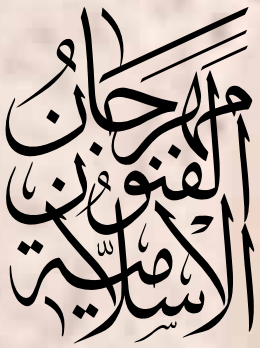 مهرجان
الفنون
الاسلامية